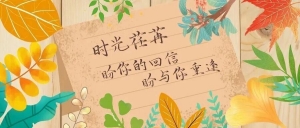 时光荏苒
盼你的回信
盼与你重逢